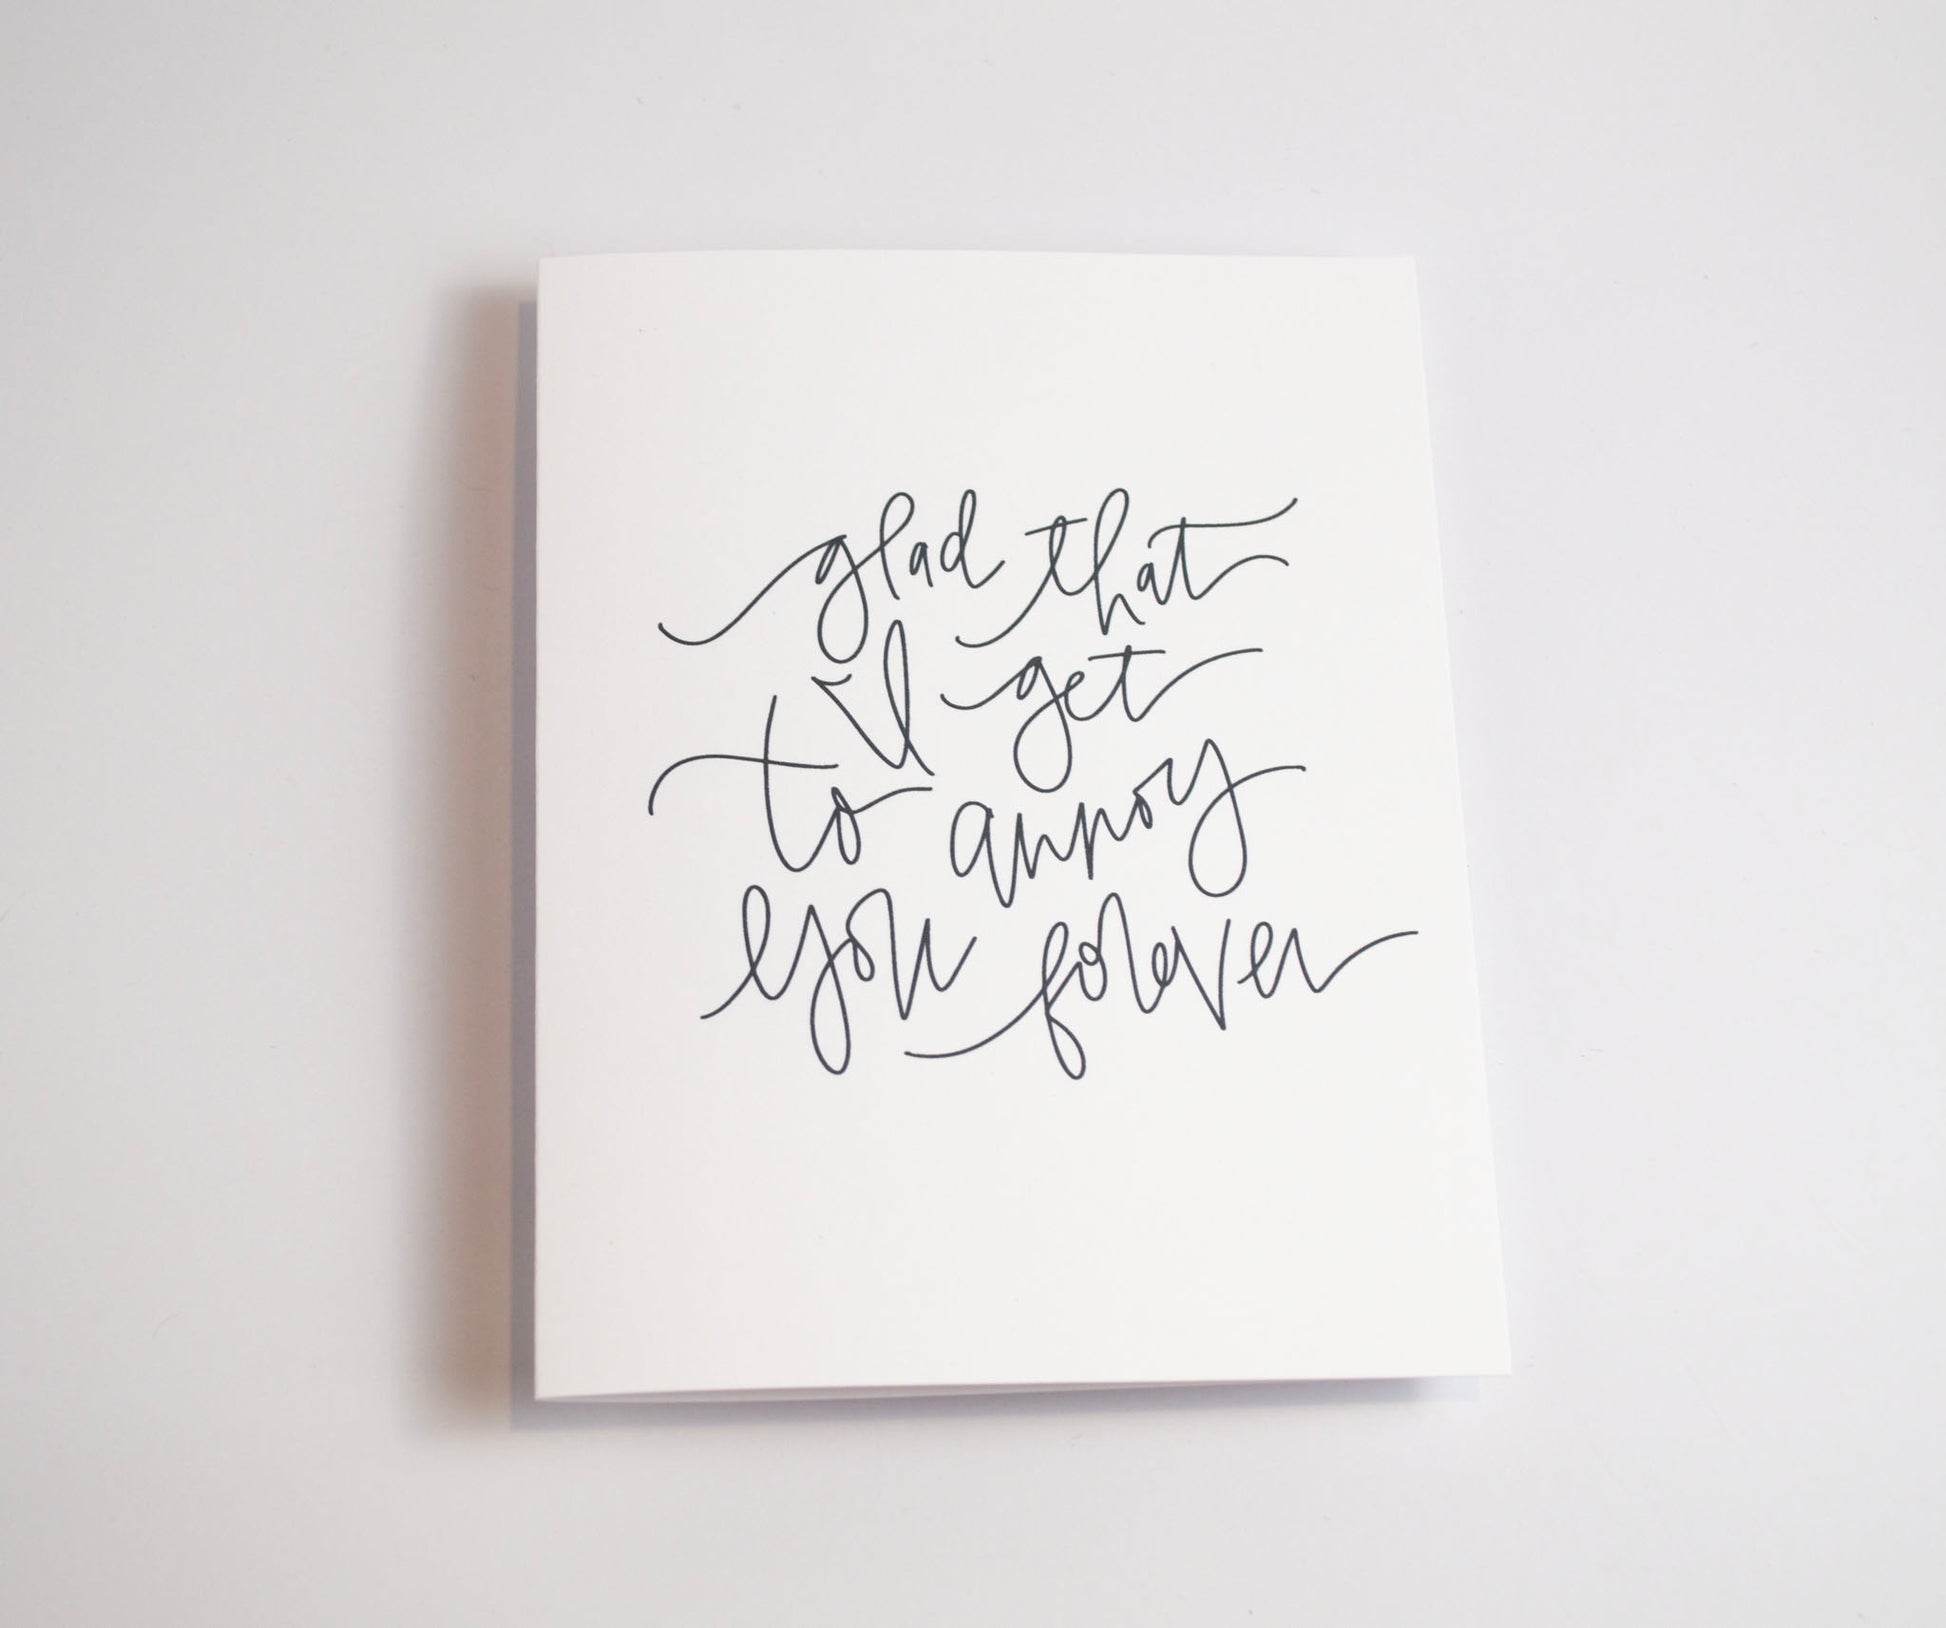 glad that
i'll get
to annoy
you forever